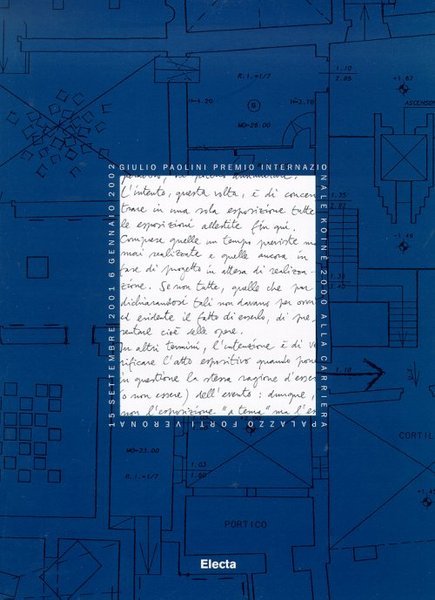 1.10
2.86
+1.67
R.I.=1/7
H=1.20
H=3.78
WO=26.00
ASCENSO
GIULIO PAOLINI PREMIO INTERNAZIO
NALE KOINÈ 2000 ALLA CARRIERA
PALAZZO FORTI VERONA
15 SETTEMBRE 2001 6 GENNAIO 2002
L'intento, questa volta, è di concen
trare in una sola esposizione tutte
le esposizioni allestite fin qui.
Comprese quelle un tempo previste ma
mai realizzate e quelle ancora in
fase di progetto in attesa di realizza-
zione. Se non tutte, quelle che pur
dichiarandosi tali non davano per ovvi
ed evidente il fatto di esserlo, di pre
sentare cioè delle opere.
In altri termini, l'intenzione è di ve
rificare l'atto espositivo quando pone
in questione la stessa ragione d'esser
(o non essere) dell'evento: dunque,
non l'esposizione "a tema" ma l'es
MO=23.00
R.I.=1/7
1.03
1.50
CORTIL
PORTICO
Electa